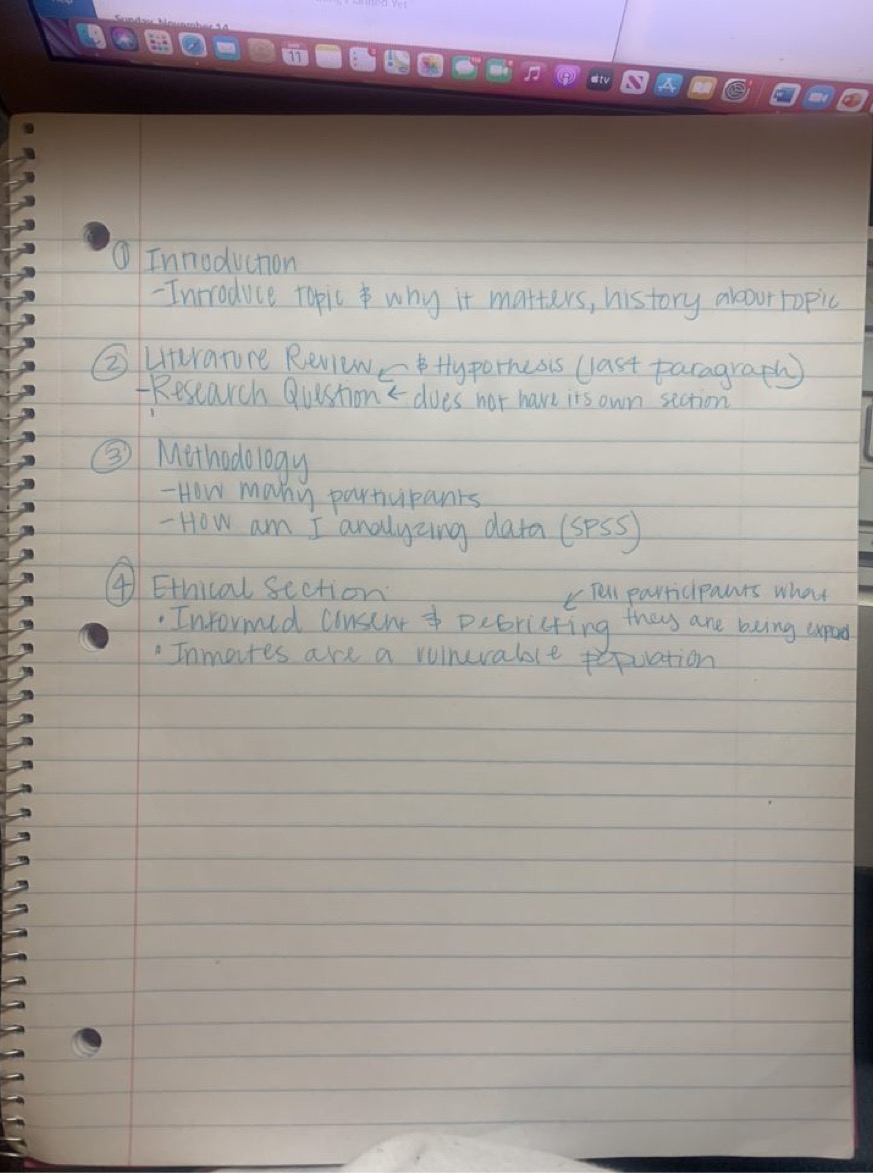 Sunday, November 14
11
tv
① Introduction
-Introduce topic & why it matters, history about topic
② Literature Review ← & Hypothesis (last paragraph)
-Research Question ← does not have its own section
③ Methodology
-How many participants
-How am I analyzing data (SPSS)
④ Ethical Section
↙ Tell participants what
• Informed Consent & Debriefing they are being
• Inmates are a vulnerable population